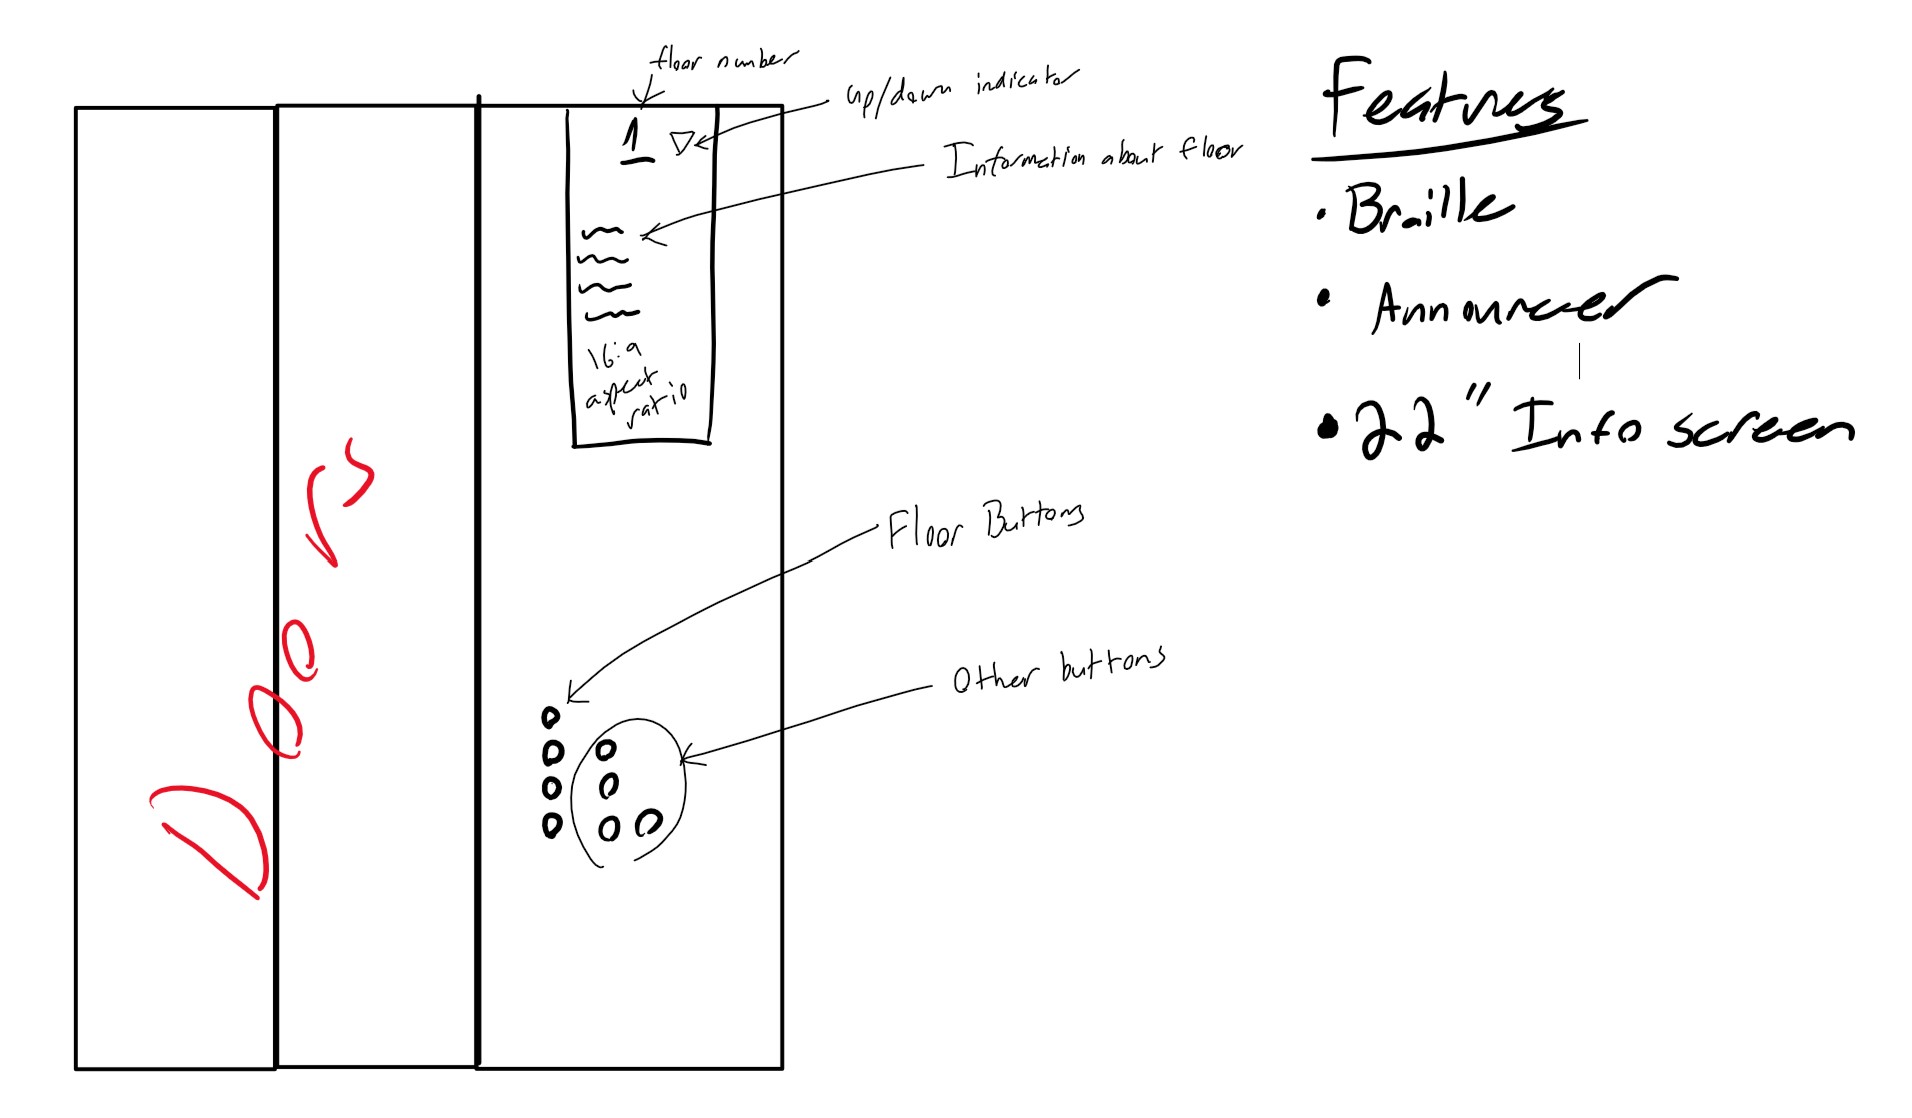 floor number
up/down indicator
1
Information about floor
16:9
aspect
ratio
Doors
Floor Buttons
Other buttons
Features
• Braille
• Announcer
• 22" Info screen